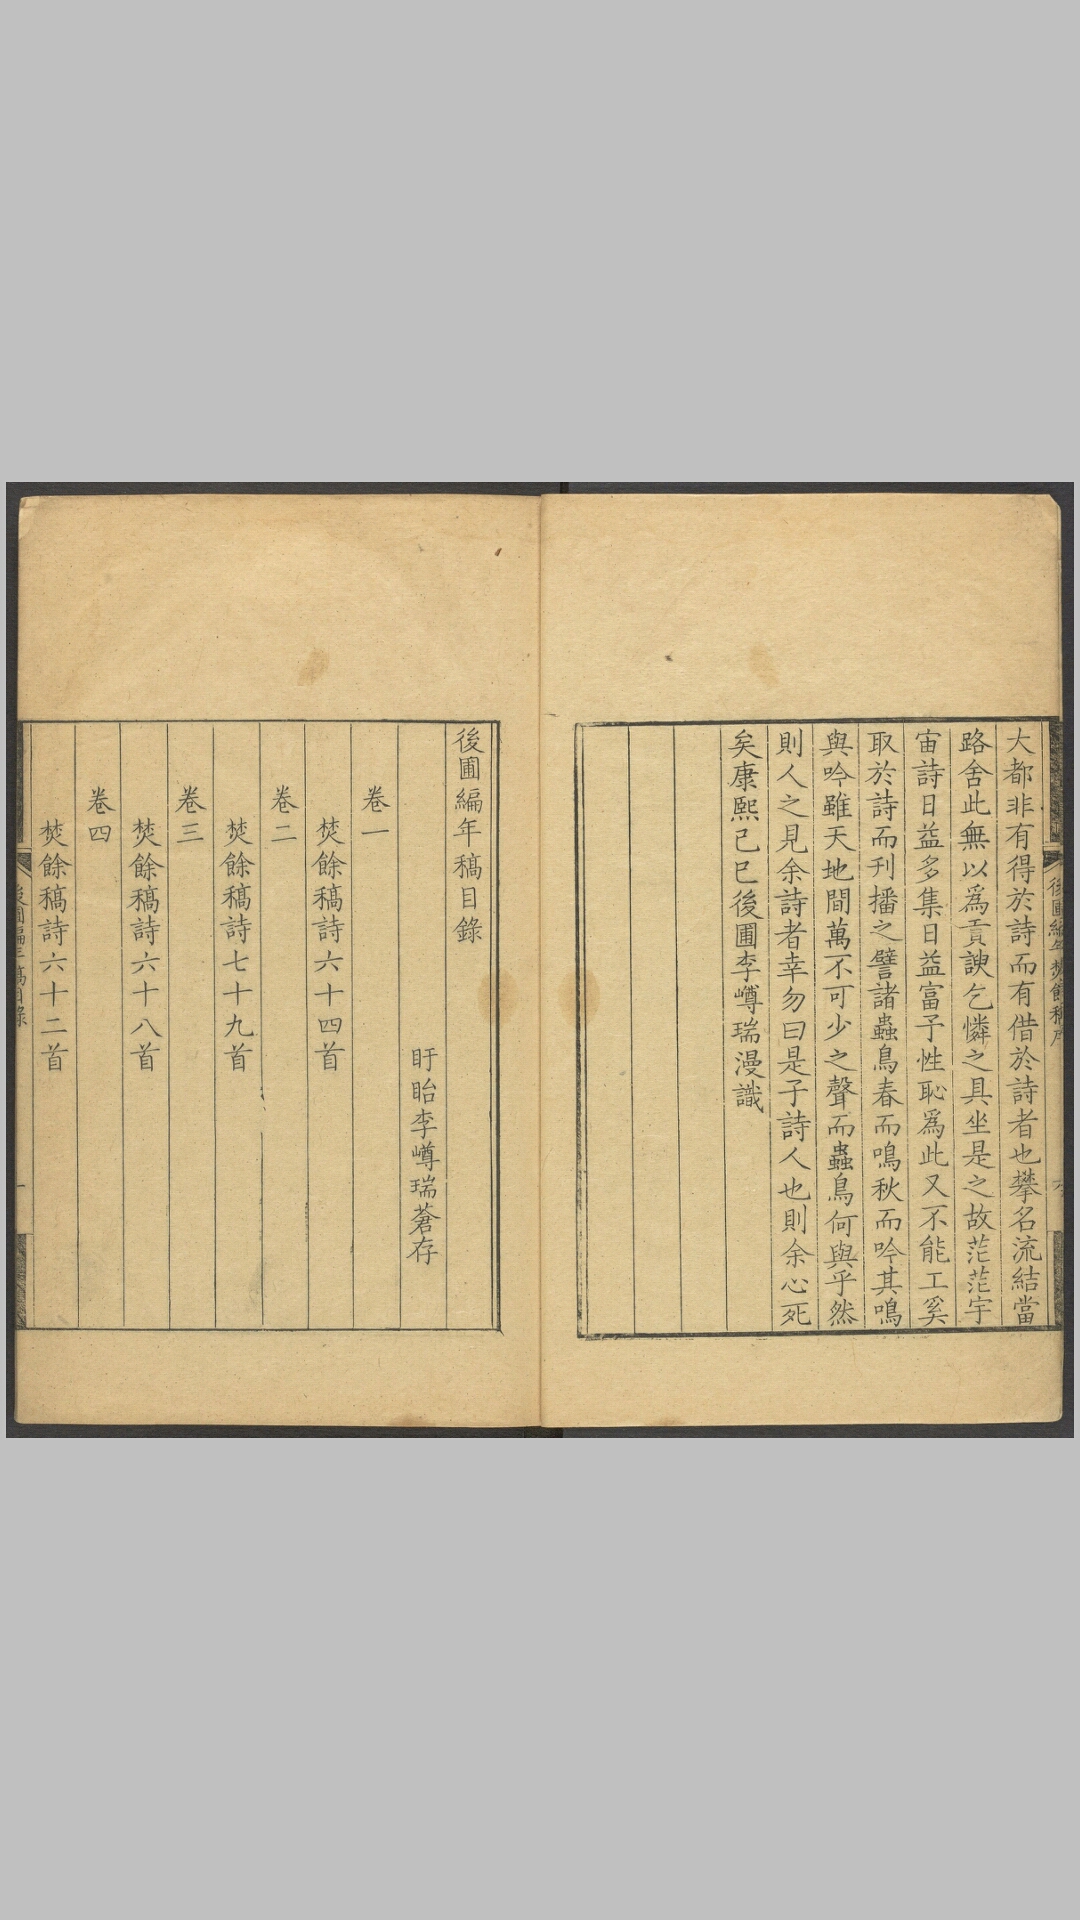 大都非有得於詩而有借於詩者也攀名流結當
路舍此無以爲貢諛乞憐之具坐是之故茫茫宇
宙詩日益多集日益富予性恥爲此又不能工奚
取於詩而刊播之譬諸蟲鳥春而鳴秋而吟其鳴
與吟雖天地間萬不可少之聲而蟲鳥何與乎然
則人之見余詩者幸勿曰是子詩人也則余心死
矣康熙己巳後圃李嶟瑞漫識
後圃編年稿目錄
盱眙李嶟瑞蒼存
卷一
焚餘稿詩六十四首
卷二
焚餘稿詩七十九首
卷三
焚餘稿詩六十八首
卷四
焚餘稿詩六十二首
後圃編年稿目錄